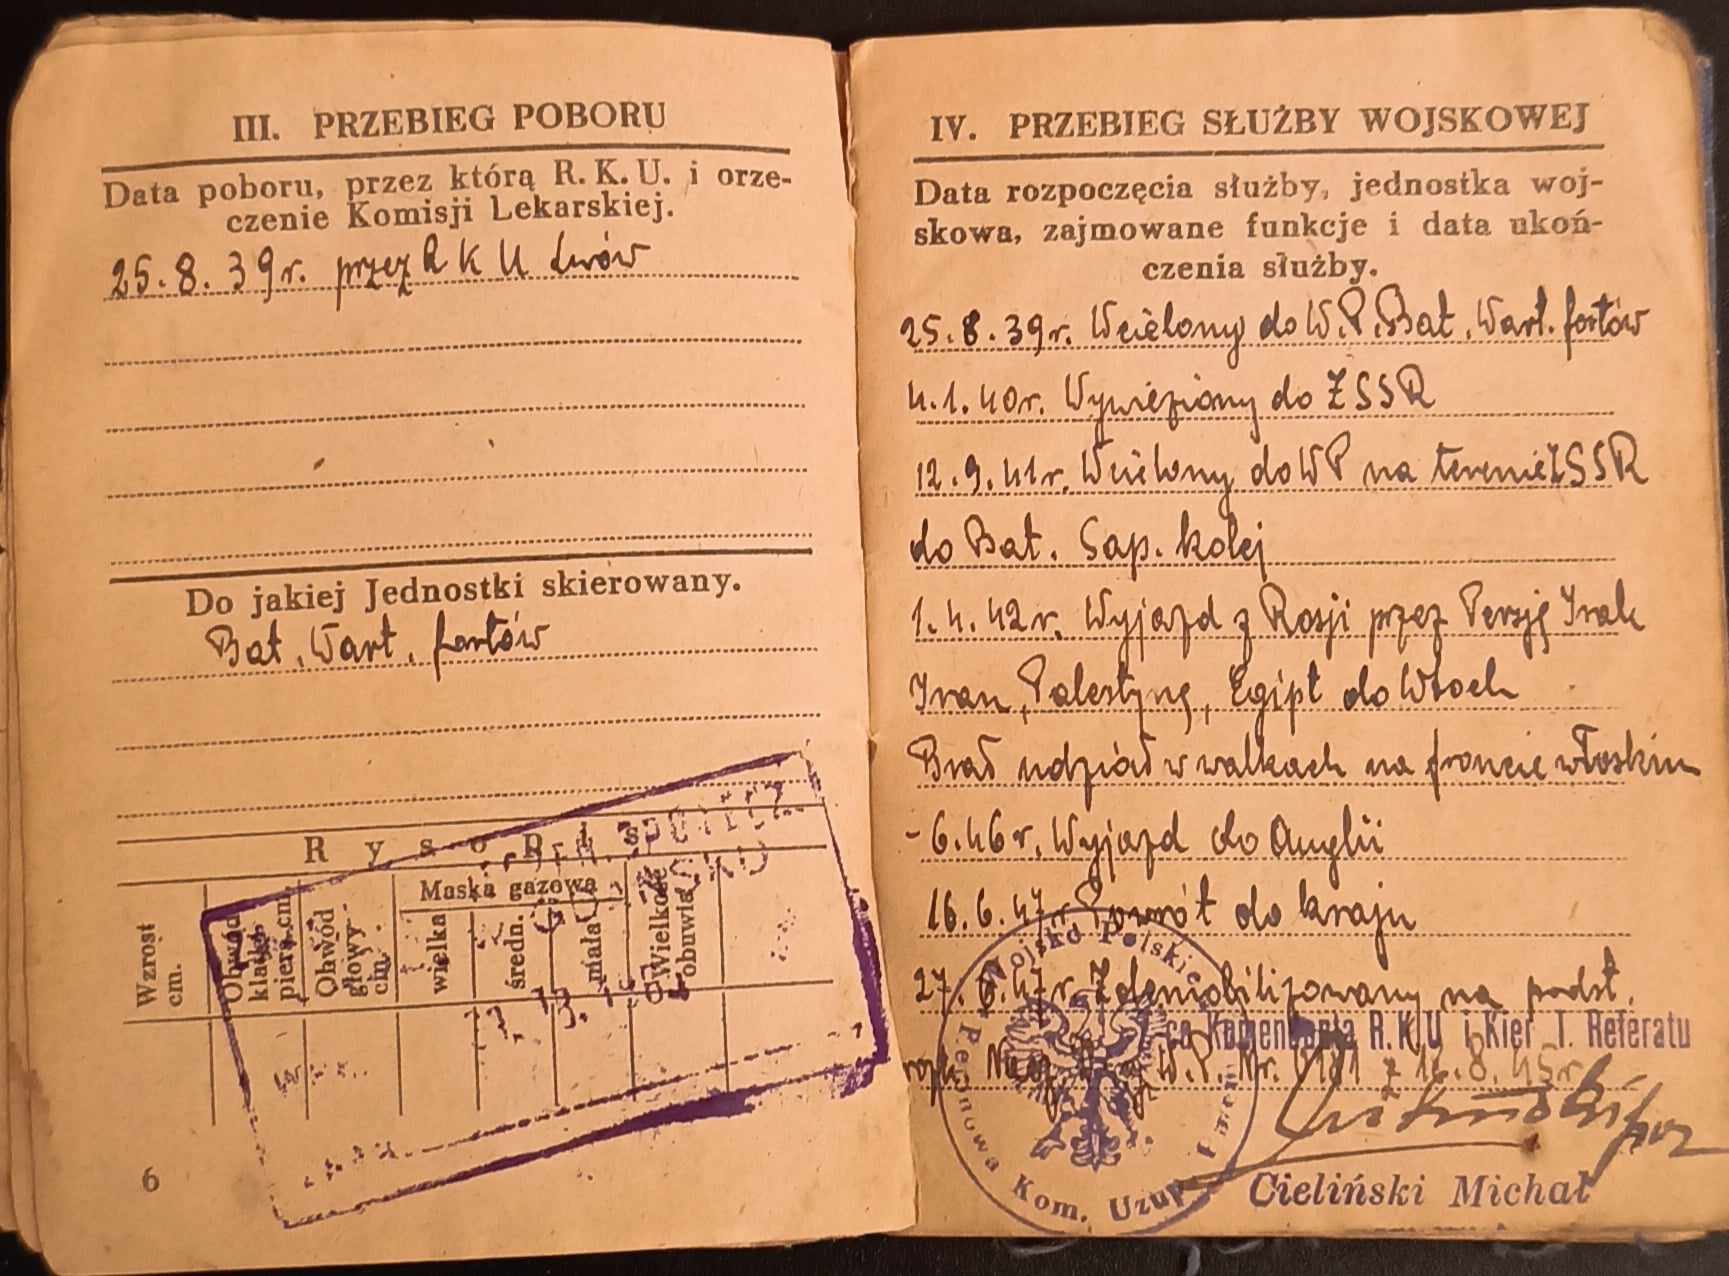 III. PRZEBIEG POBORU
Data poboru, przez którą R. K. U. i orze-
czenie Komisji Lekarskiej.
25.8.39r. przez R K U Lwów
Do jakiej Jednostki skierowany.
Bat. Wart. fortów
Rysopis
Wzrost cm.
Obwód klatki piers. cm.
Obwód głowy cm.
Maska gazowa
wielka
średn.
mała
Wielkość obuwia
6
IV. PRZEBIEG SŁUŻBY WOJSKOWEJ
Data rozpoczęcia służby, jednostka woj-
skowa, zajmowane funkcje i data ukoń-
czenia służby.
25.8.39r. Wcielony do W.P. Bat. Wart. fortów
4.1.40r. Wywieziony do ZSSR
12.9.41r. Wcielony do WP na terenie ZSSR
do Bat. Sap. kolej
1.4.42r. Wyjazd z Rosji przez Persję Irak
Iran, Palestynę, Egipt do Włoch
Brał udział w walkach na froncie włoskim
- 6.46r. Wyjazd do Anglii
16.6.47r. Powrót do kraju
27.6.47r. Zdemobilizowany na podst.
rozk. W.P. Nr. z 8.45r
Komendanta R.K.U i Kier I. Referatu
Wojsko Polskie
Rejonowa Kom. Uzup.
Cieliński Michał
por